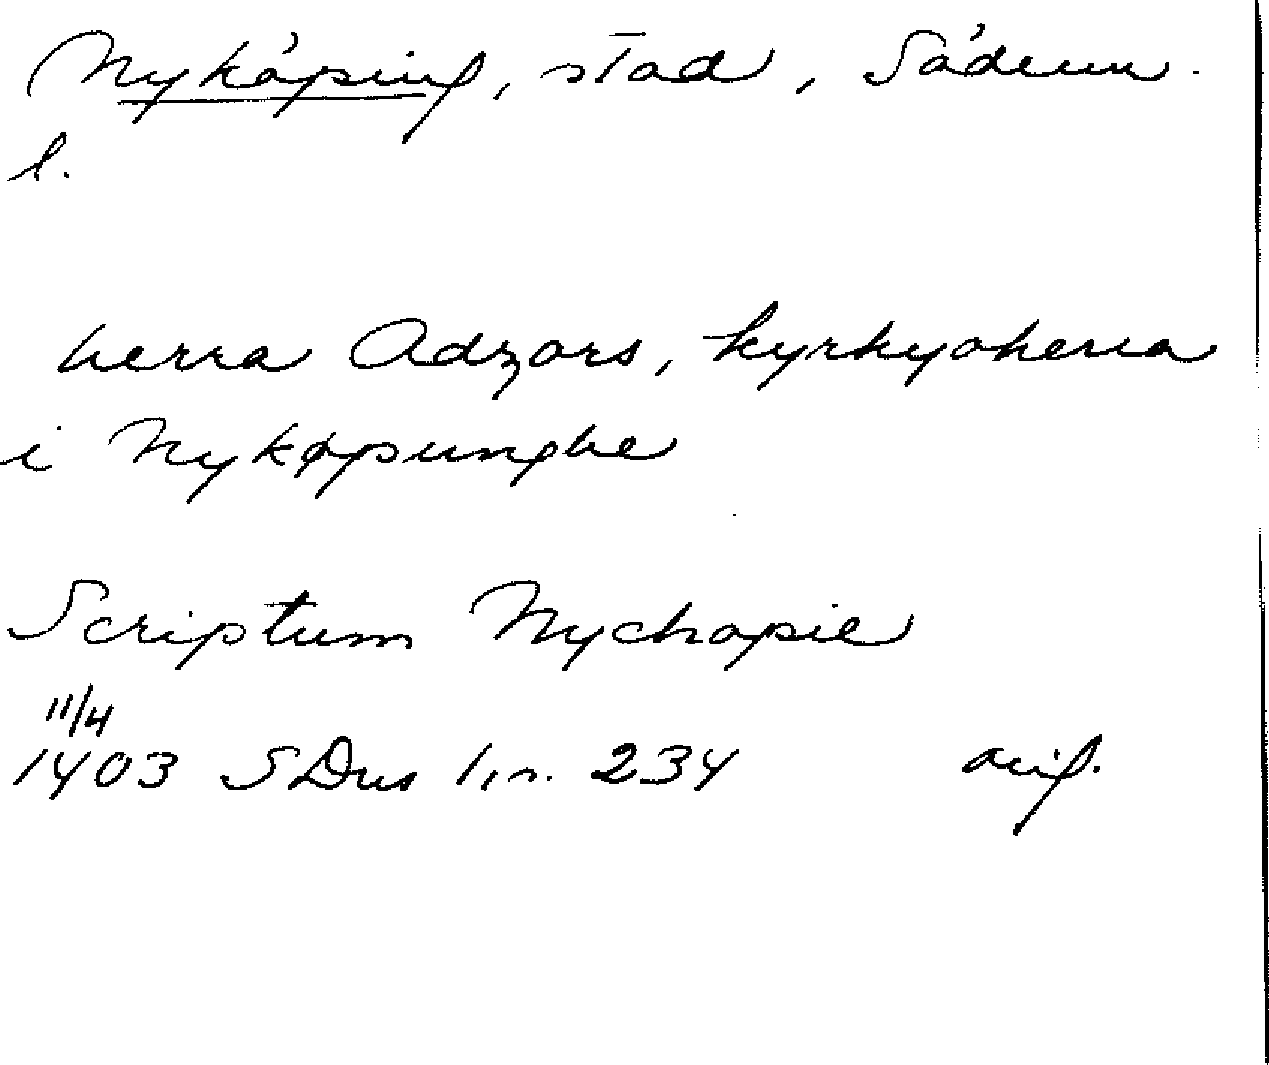 Nyköping, stad, Söderm.
l.
herra Adzors, kyrkyoherra
i Nykøpunghe
Scriptum Nychopie
11/4
1403 SDns 1, n. 234 orig.